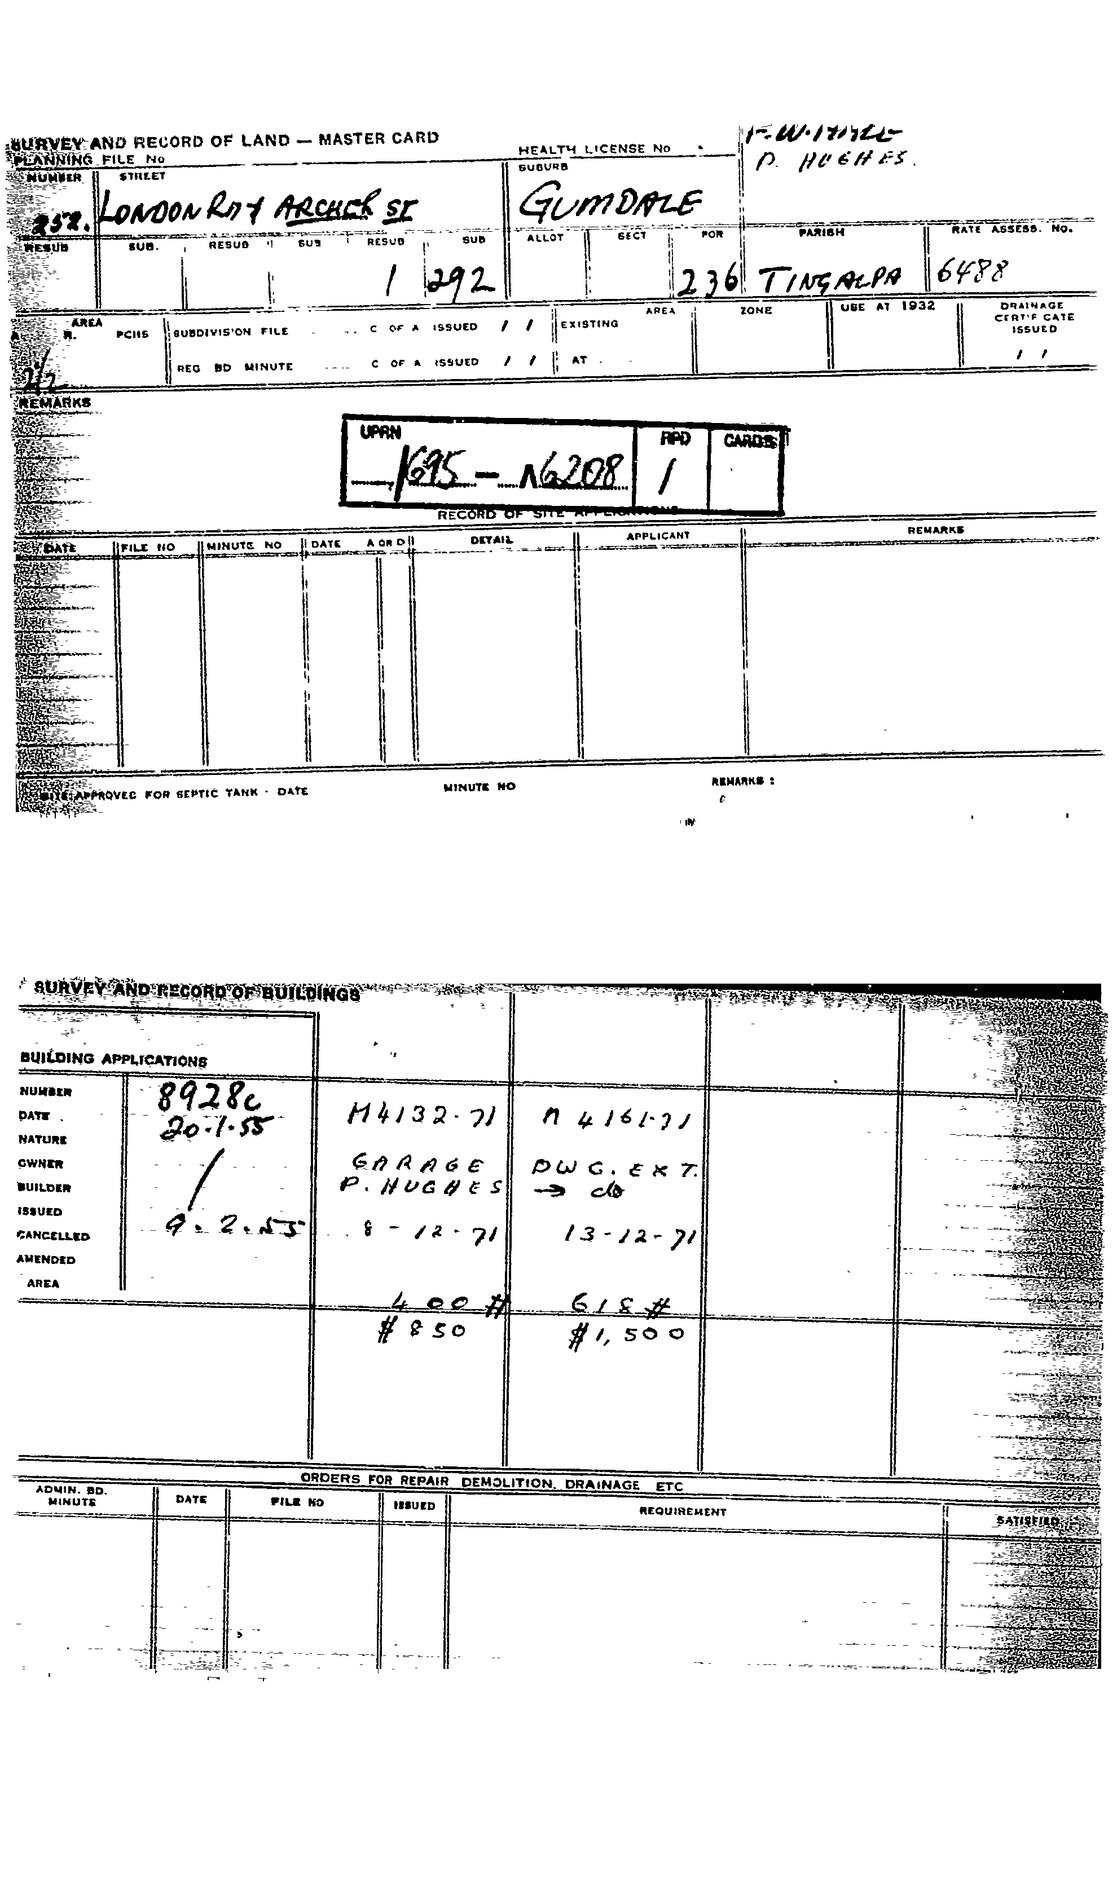 SURVEY AND RECORD OF LAND — MASTER CARD
PLANNING FILE No
HEALTH LICENSE No
P. HUGHES.
NUMBER STREET SUBURB
252. LONDON RD & ARCHER ST GUMDALE
RESUB SUB. RESUB SUB RESUB SUB ALLOT SECT POR PARISH RATE ASSESS. No.
1 292 236 TINGALPA 6488
AREA
A R. PCHS SUBDIVISION FILE C OF A ISSUED / / EXISTING AREA ZONE USE AT 1932 DRAINAGE CERTIFICATE ISSUED
REG BD MINUTE C OF A ISSUED / / AT / /
REMARKS
UPRN RPD CARDS
1695 — 16208 1
RECORD OF SITE APPLICATIONS
DATE FILE NO MINUTE NO DATE A OR D DETAIL APPLICANT REMARKS
SITE APPROVED FOR SEPTIC TANK - DATE MINUTE NO REMARKS :
SURVEY AND RECORD OF BUILDINGS
BUILDING APPLICATIONS
NUMBER 8928c M4132-71 4161-71
DATE 20-1-55
NATURE GARAGE DWG. EXT.
OWNER P. HUGHES → do
BUILDER
ISSUED 9.2.55 8-12-71 13-12-71
CANCELLED
AMENDED
AREA 400 # 618 #
$850 $1,500
ORDERS FOR REPAIR DEMOLITION, DRAINAGE ETC
ADMIN. BD. MINUTE DATE FILE NO ISSUED REQUIREMENT SATISFIED